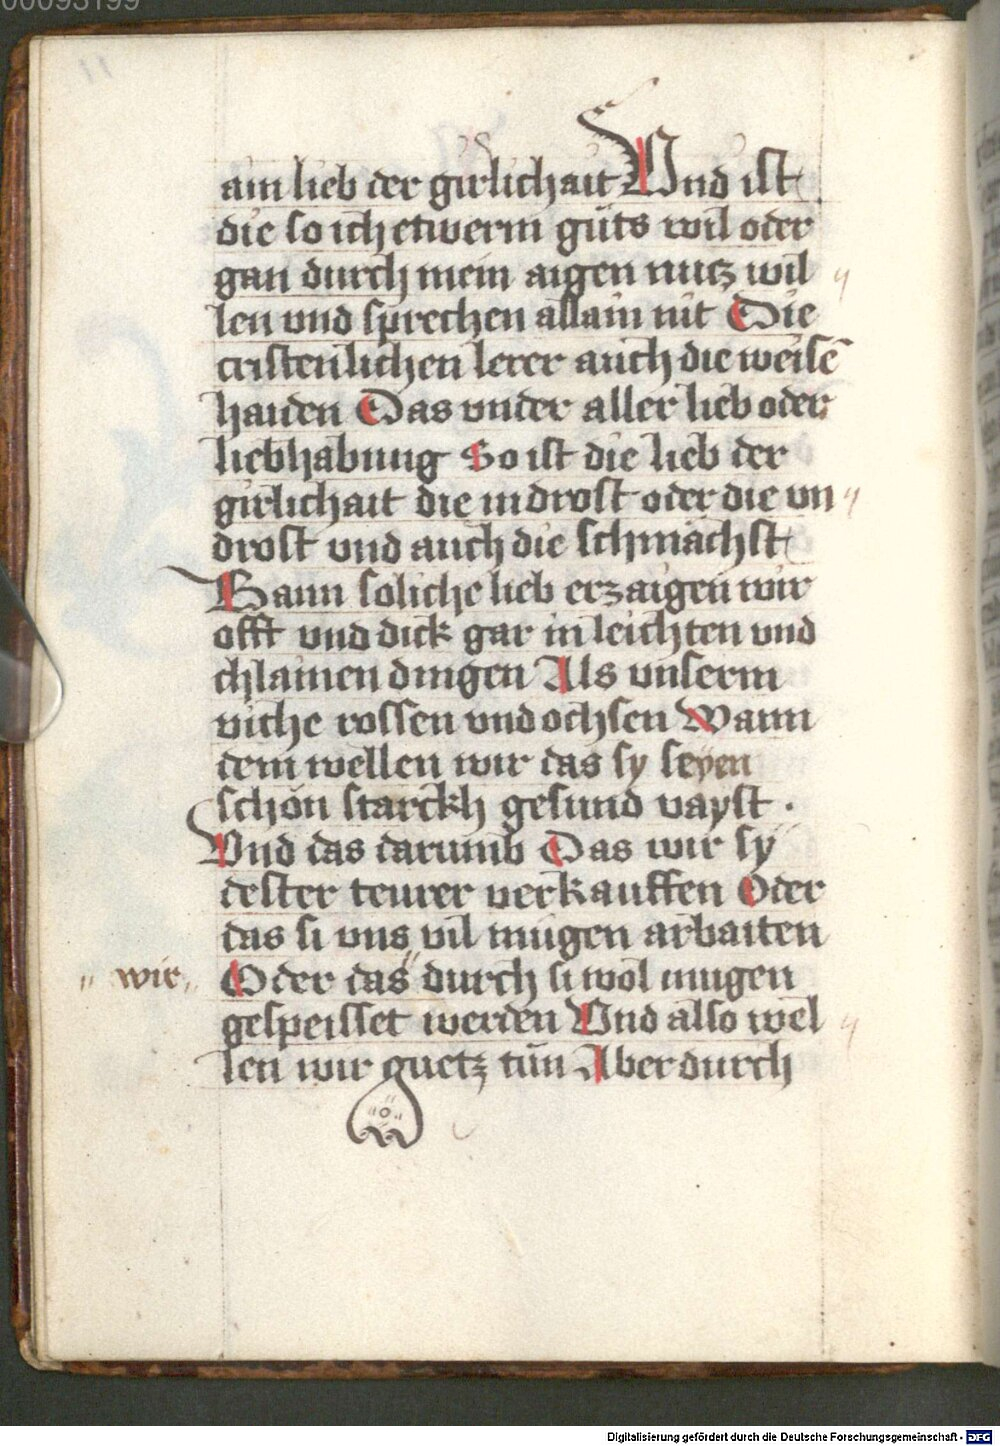 ain lieb der girlichait Vnd ist
die so ich etwerm güts wil oder
gan durch mein aigen nutz wil
len vnd sprechen allain nit Die
cristenlichen lerer auch die weisē
haiden Das vnder aller lieb oder
liebhabung So ist die lieb der
girlichait die indrost oder die vn
drost vnd auch die schmächst
Wann soliche lieb erzaigen wir
offt vnd dick gar in leichten vnd
chlainen dingen Als vnserm
viche rossen vnd ochsen Wann
dem wellen wir das sy seyen
schön starckh gesund vayst .
Vnd das darumb Das wir sy
dester teurer verkauffen Oder
das si vns vil mügen arbaiten
wir
Oder das durch si wol mugen
gespeisset werden Vnd also wel
len wir guetz tün Aber durch
Digitalisierung gefördert durch die Deutsche Forschungsgemeinschaft - DFG